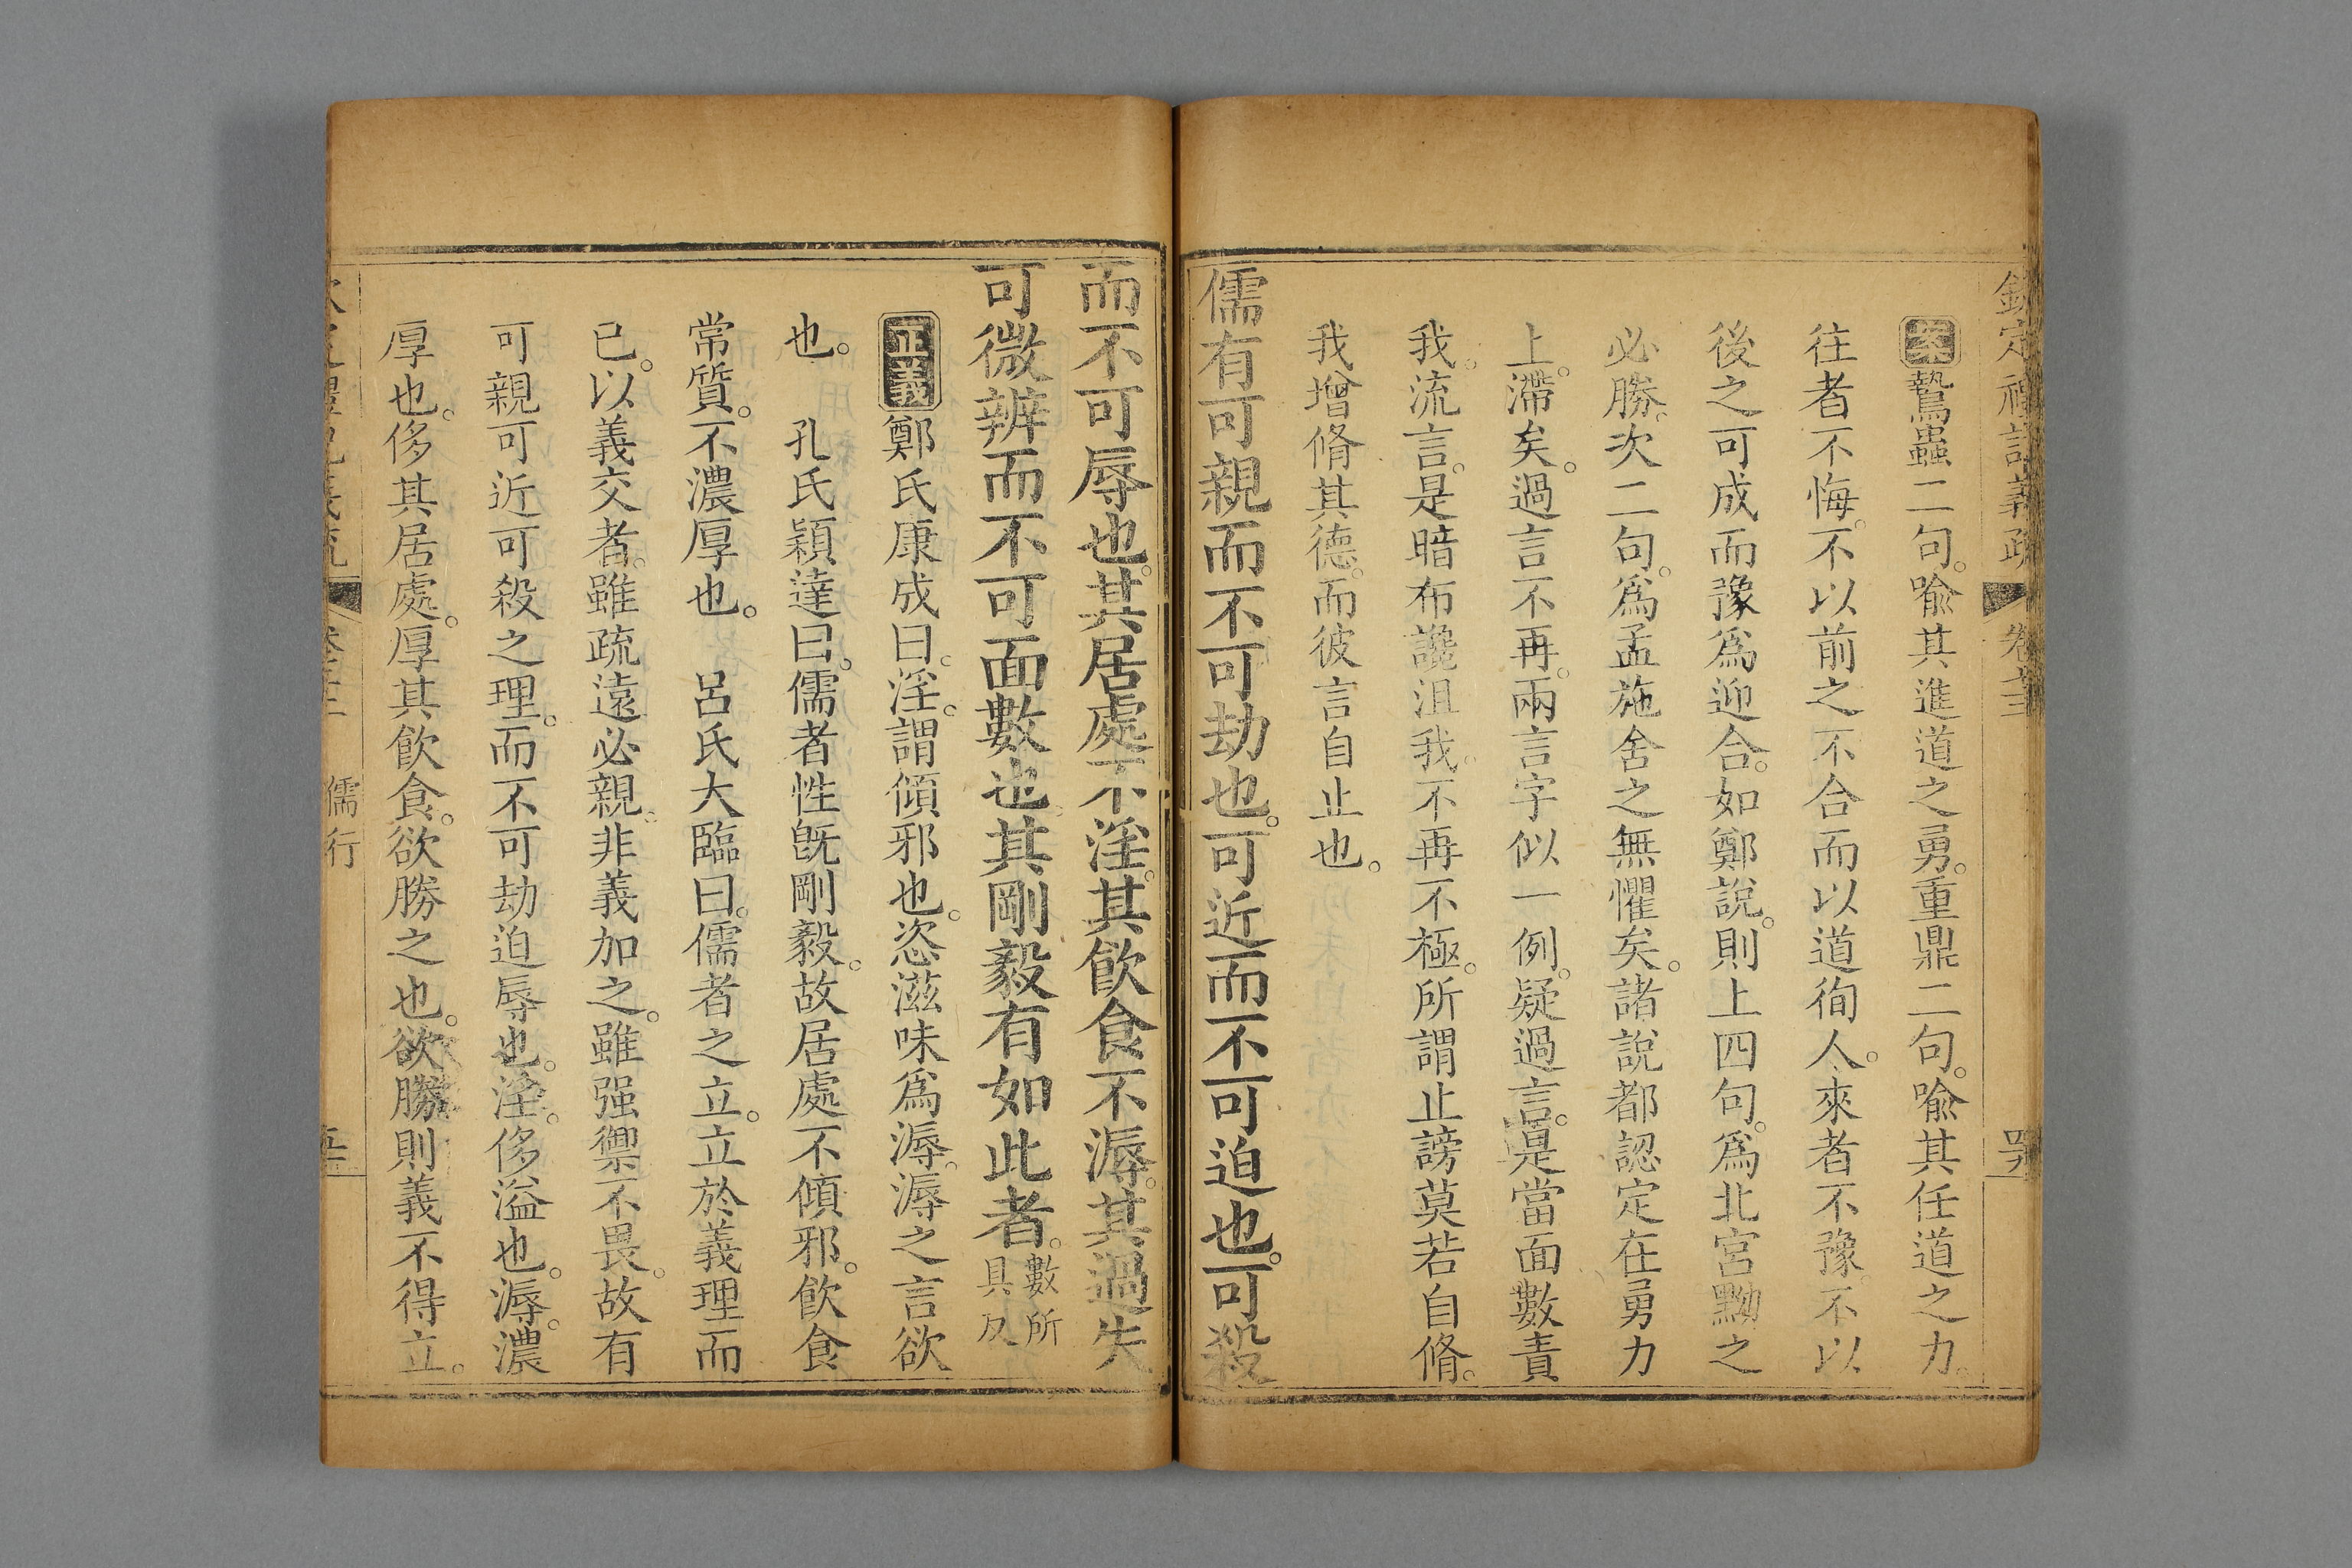 欽定禮記義疏 卷 儒行
案鷙蟲二句。喩其進道之勇。重鼎二句。喩其任道之力。
往者不悔。不以前之不合而以道徇人。來者不豫。不以
後之可成而豫爲迎合。如鄭說。則上四句。爲北宮黝之
必勝。次二句。爲孟施舍之無懼矣。諸說都認定在勇力
上。滯矣。過言不再。兩言字似一例。疑過言。是當面數責
我。流言。是暗布讒沮我。不再不極。所謂止謗莫若自脩。
我增脩其德。而彼言自止也。
儒有可親而不可劫也。可近而不可迫也。可殺
而不可辱也。其居處不淫。其飲食不溽。其過失
可微辨而不可面數也。其剛毅有如此者。數所具反
正義鄭氏康成曰。淫。謂傾邪也。恣滋味爲溽。溽之言欲
也。 孔氏穎達曰。儒者性旣剛毅。故居處不傾邪。飲食
常質。不濃厚也。 呂氏大臨曰。儒者之立。立於義理而
已。以義交者。雖疏遠必親。非義加之。雖强禦不畏。故有
可親可近可殺之理。而不可劫迫辱也。淫。侈溢也。溽。濃
厚也。侈其居處。厚其飲食。欲勝之也。欲勝則義不得立。
儒行